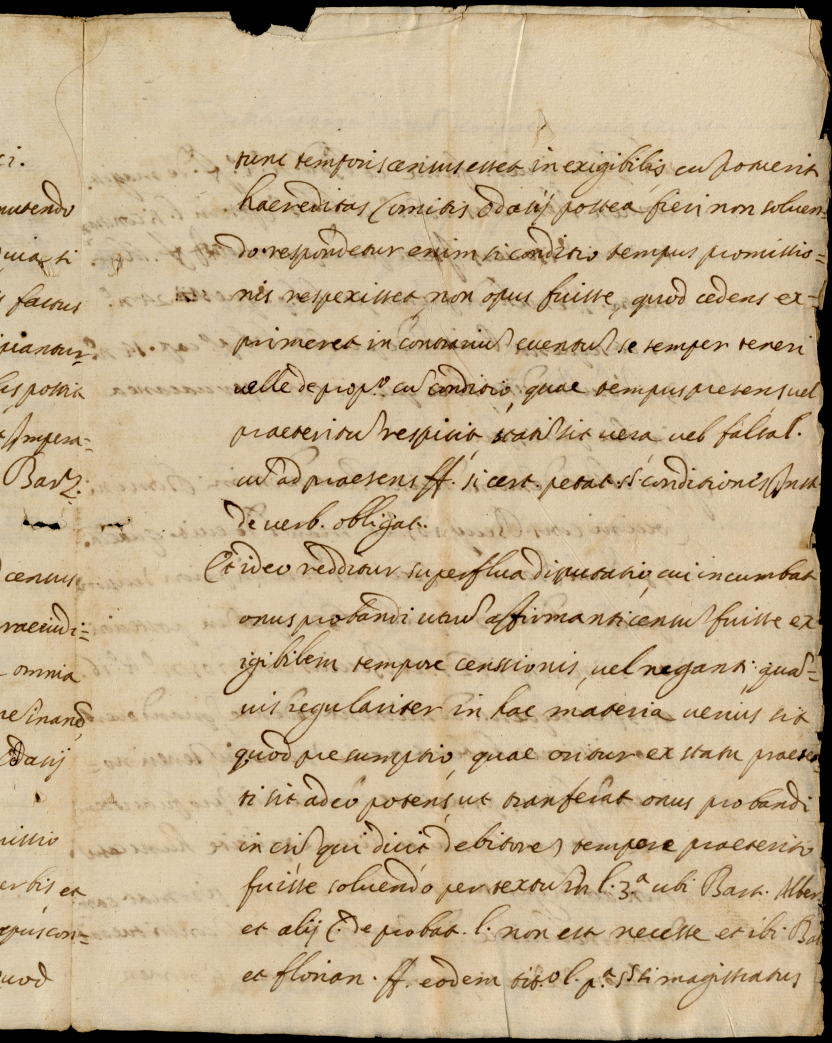 ci.
mutendo
quia si
s factus
piantur
las possit
Impera=
Bart.
census
raeiudi=
omnia
Odasij
missio
erbis et
quod
tunc temporis census esset inexigibilis cu potuerit
haereditas Comitis Odasij postea fieri non soluen=
do respondetur enim si conditio tempus promissio=
nis respexisset non opus fuisse, quod cedens ex=
primeret in contrariu euentu se semper teneri
uelle de prop.o cu conditio, quae tempus presens uel
praeteritu respicit, stati sit uera uel falsa l.
cu ad praesens ff. si cert. petat. §. conditiones Inst
de uerb. obligat.
Et ideo redditur superflua disputatio, cui incumbat
onus probandi utru affirmanti censu fuisse ex
igibilem tempore censsionis, uel neganti: qua=
uis regulariter in hac materia uerius sit
quod presumptio, quae oritur ex statu praesen
ti sit adeo potens, ut tranferat onus probandi
in eu qui dicit debitore tempore praeterito
fuisse soluendo per textu in l. 3.a ubi Bart. Alber
et alij C. de probat. l. non est necesse et ibi Bal
et florian. ff. eodem tit.o l. p.a §. si magistratus